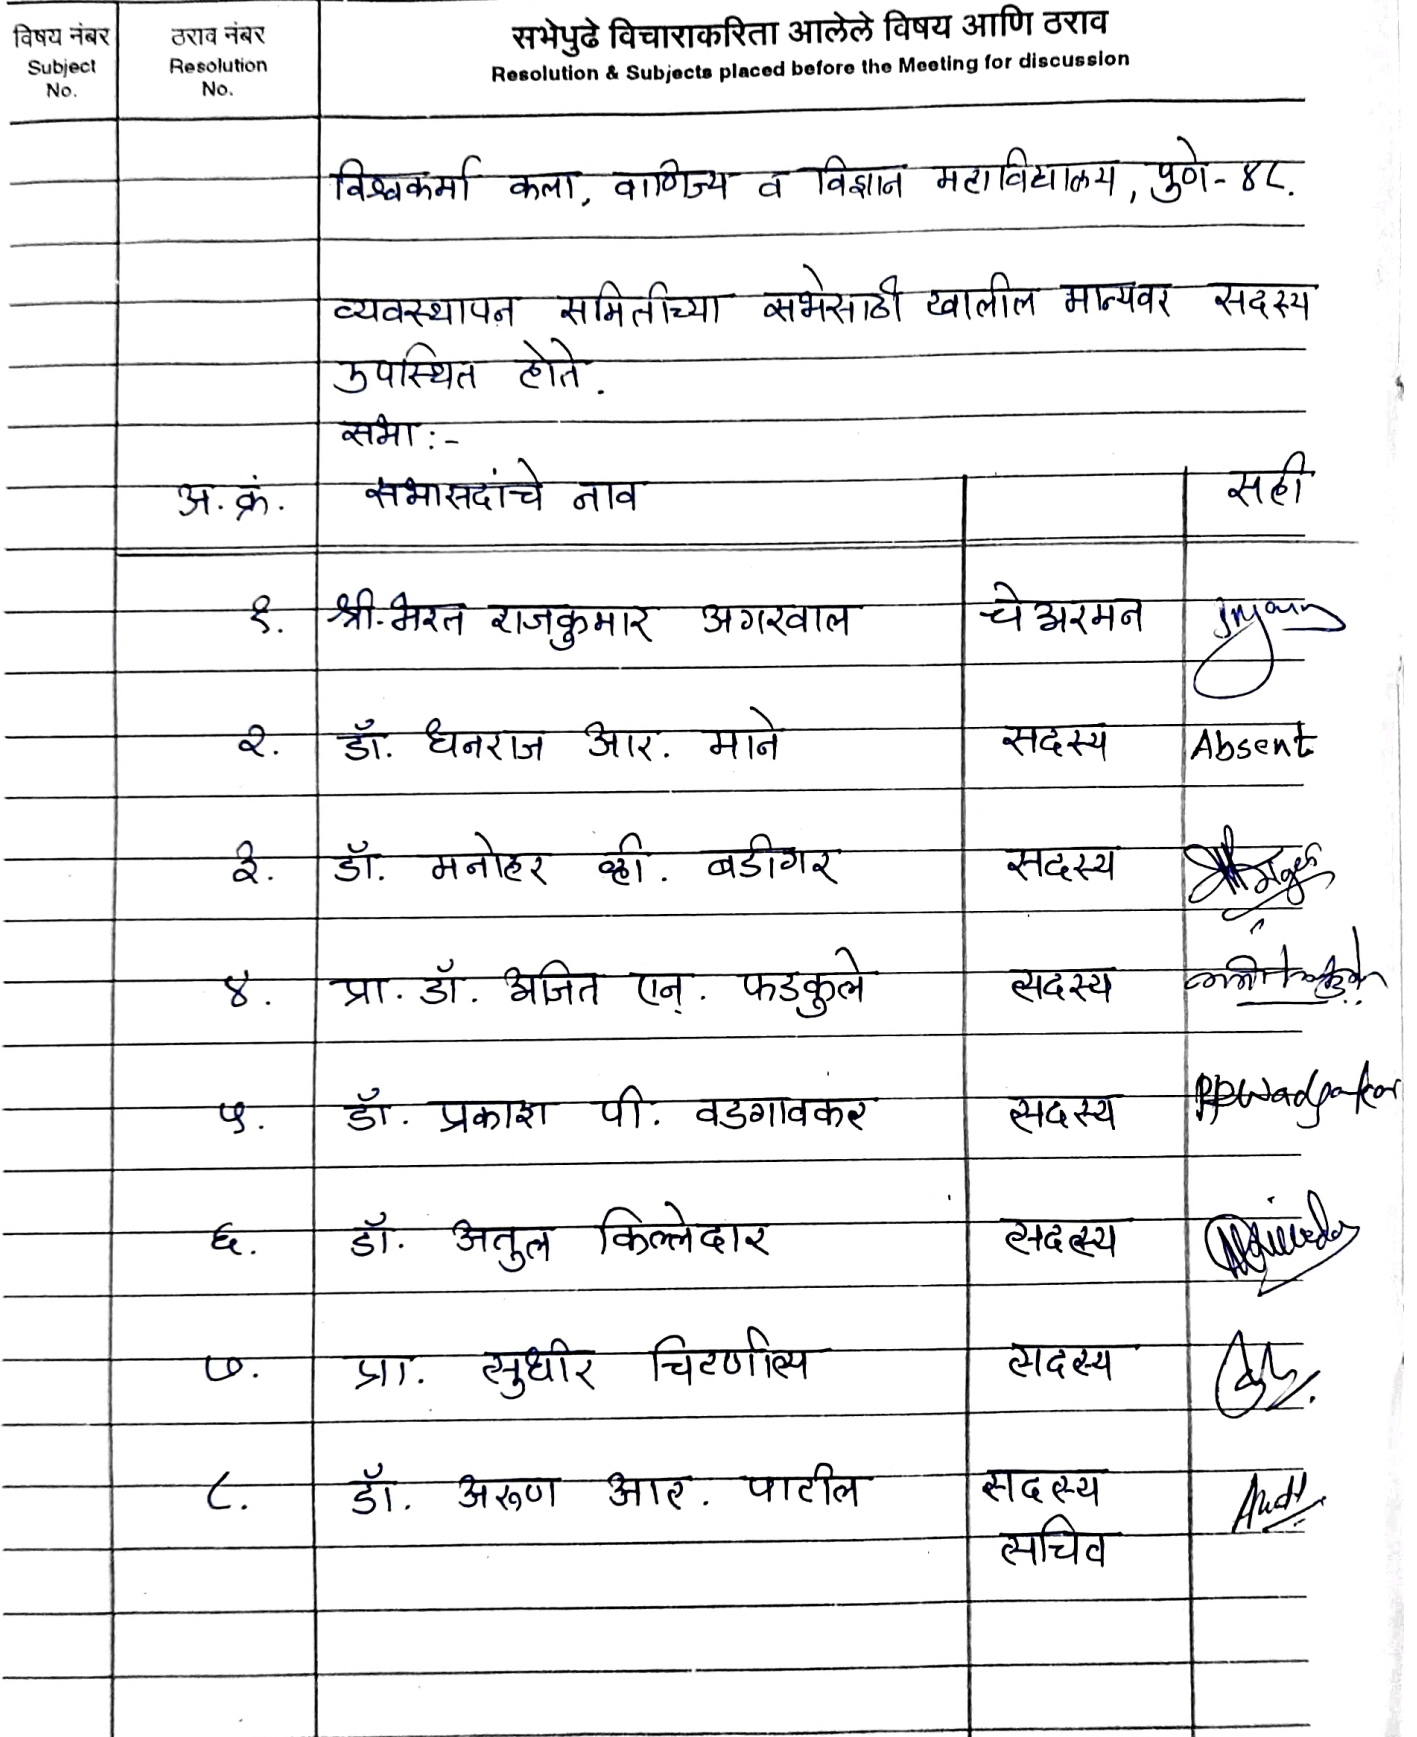 विषय नंबर ठराव नंबर सभेपुढे विचाराकरिता आलेले विषय आणि ठराव
Subject Resolution Resolution & Subjects placed before the Meeting for discussion
No. No.
विश्वकर्मा कला, वाणिज्य व विज्ञान महाविद्यालय, पुणे-४८.
व्यवस्थापन समितीच्या सभेसाठी खालील मान्यवर सदस्य
उपस्थित होते.
सभा :-
अ. क्रं. सभासदांचे नाव सही
१. श्री. भरत राजकुमार अगरवाल चेअरमन
२. डॉ. धनराज आर. माने सदस्य Absent
३. डॉ. मनोहर व्ही. बडीगर सदस्य
४. प्रा. डॉ. अजित एन्. फडकुले सदस्य
५. डॉ. प्रकाश पी. वडगावकर सदस्य PPWadgaonkar
६. डॉ. अतुल किल्लेदार सदस्य
७. प्रा. सुधीर चिटणीस सदस्य
८. डॉ. अरुण आर. पाटील सदस्य
सचिव